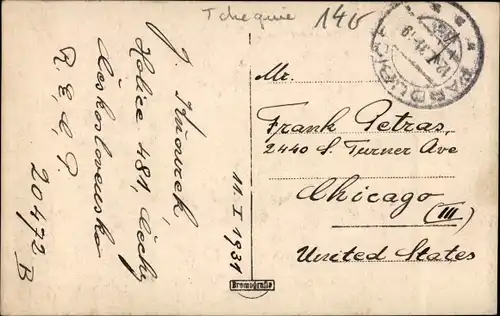 Tchequie
140
PARDUBICE
J. Kňourek,
Holice 481, Čechy
Československo
R.E.C.P.
20472 B
11. I 1931
Bromografia
Mr.
Frank Petras,
2440 S. Turner Ave
Chicago
(Ill)
United States